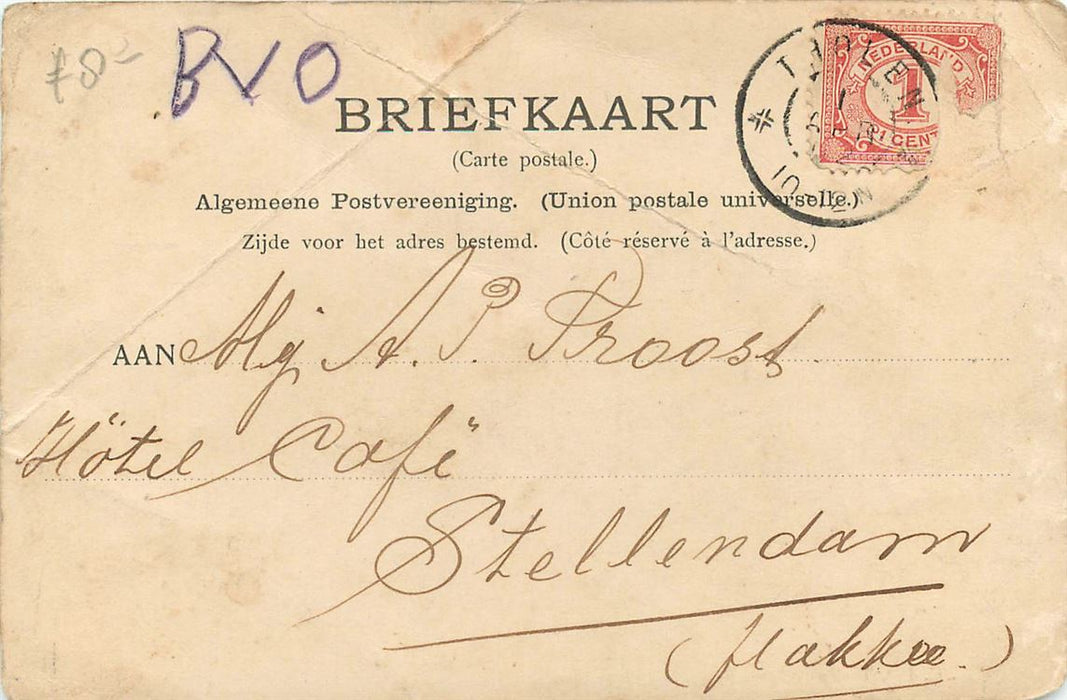 78-
BVO
BRIEFKAART
(Carte postale.)
Algemeene Postvereeniging. (Union postale universelle.)
Zijde voor het adres bestemd. (Côté réservé à l'adresse.)
NEDERLAND
1
1 CENT
AAN Mej A. P. Proost
Hötel Café
Stellendam
(flakkee.)